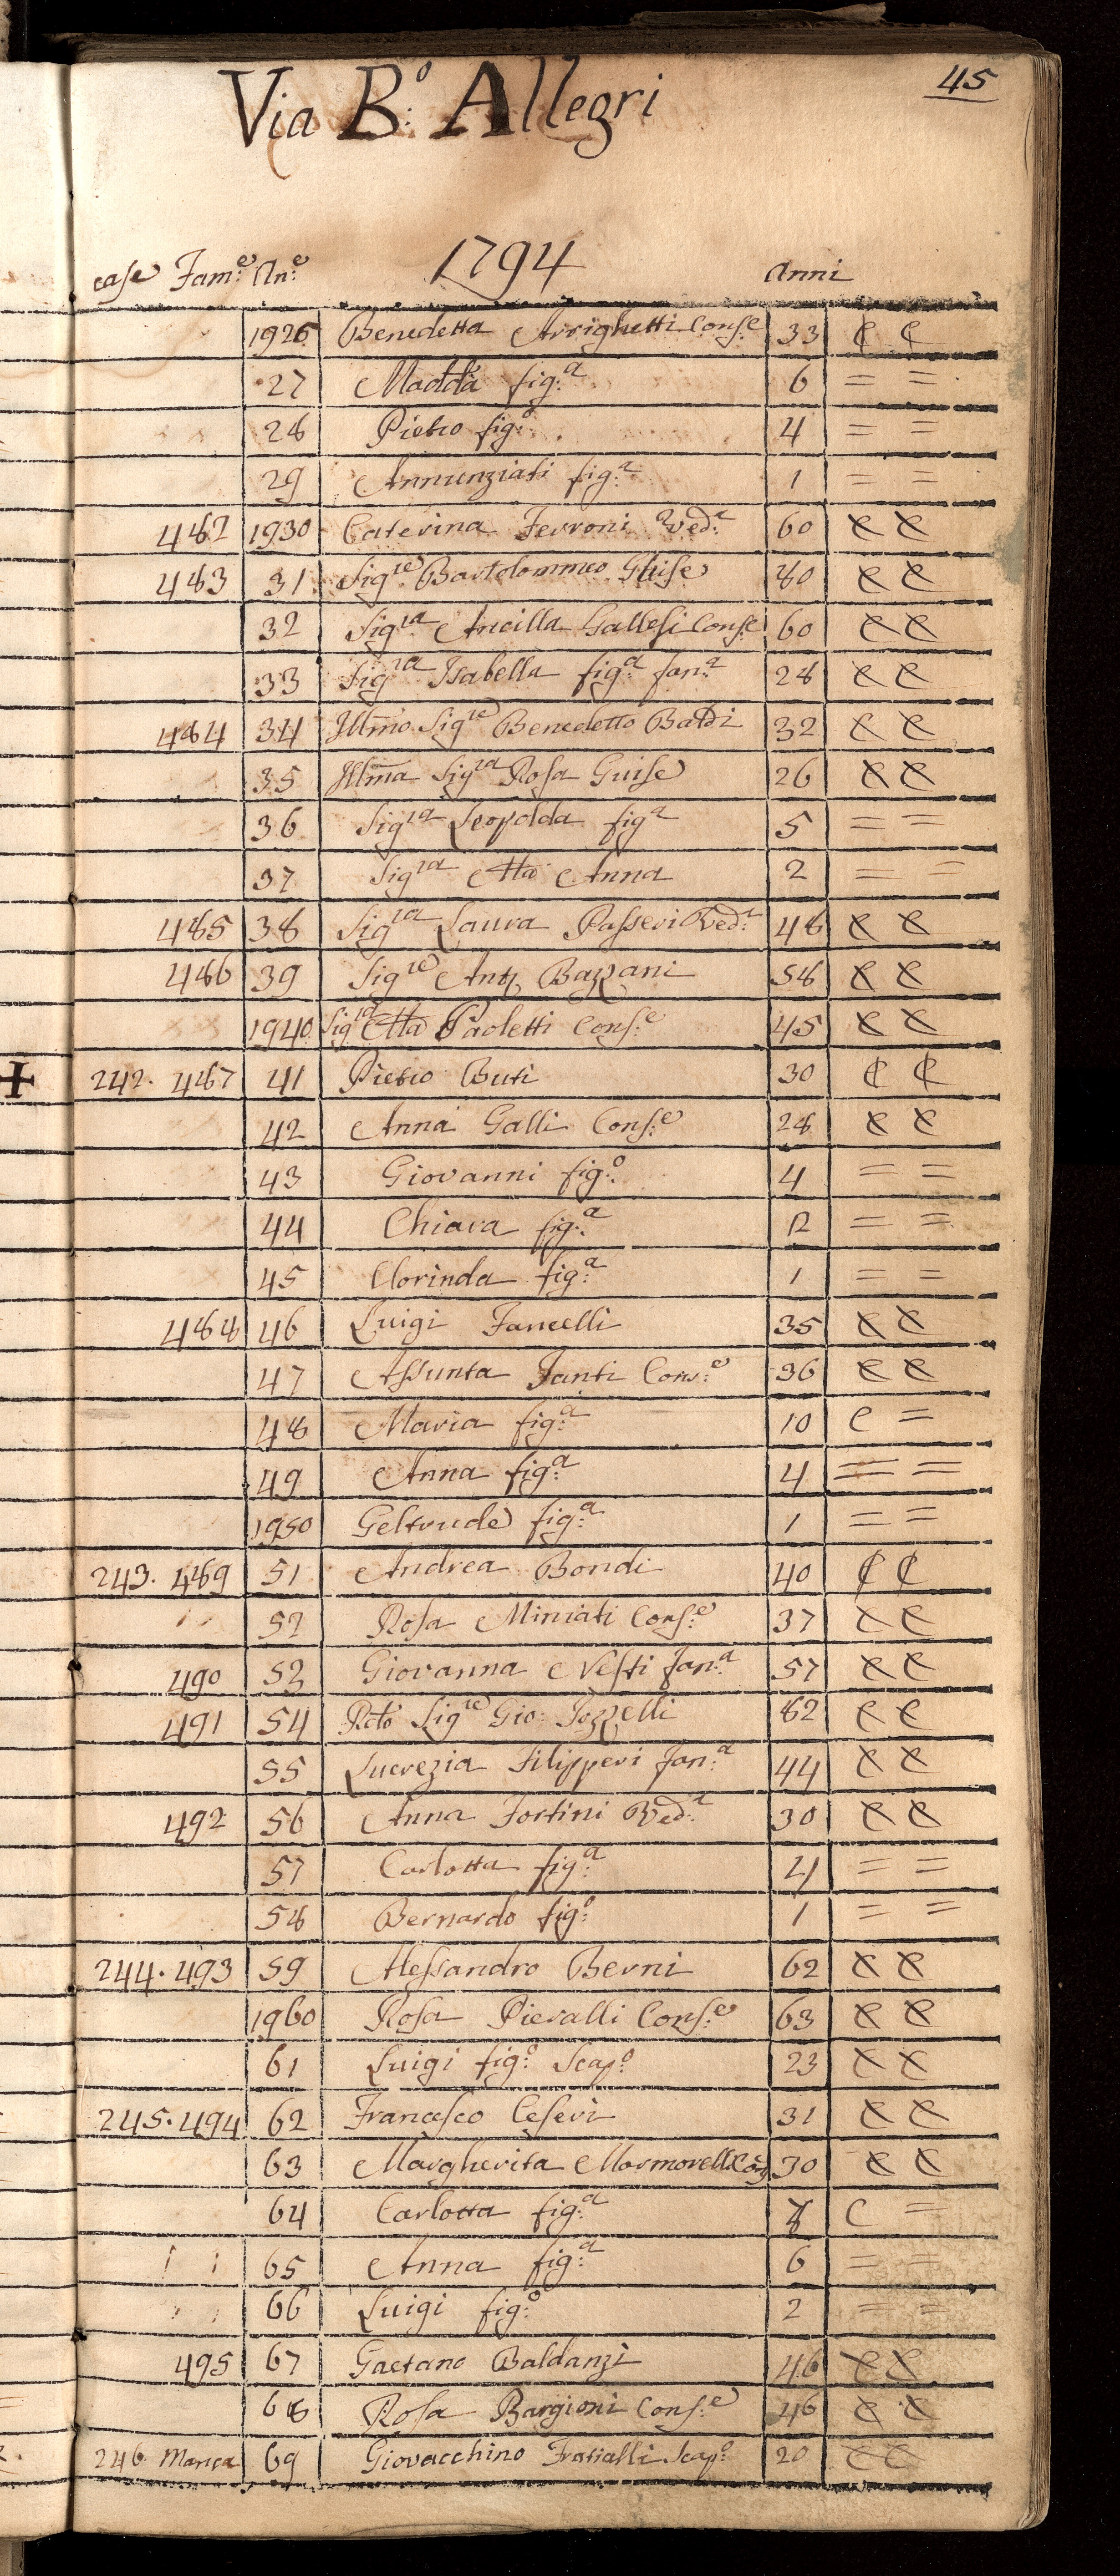 45
Via B.º Allegri
1794
case Fam.e An.e Anni
1926 Benedetta Arrighetti Cons.e 33 C C
27 Madd.a fig.a 6 = =
28 Pietro fig.o 4 = =
29 Annunziati fig.a 1 = =
482 1930 Caterina Ferroni Ved.a 60 C C
483 31 Sig.re Bartolommeo Ghise 80 C C
32 Sig.ra Ancilla Gallesi Cons.e 60 C C
33 Sig.ra Isabella fig.a fan.a 28 C C
484 34 Illmo Sig.re Benedetto Baldi 32 C C
35 Illma Sig.ra Rosa Guise 26 C C
36 Sig.ra Leopolda fig.a 5 = =
37 Sig.ra Ma Anna 2 = =
485 38 Sig.ra Laura Passeri Ved.a 48 C C
486 39 Sig.re Ant. Bazzani 58 C C
1940 Sig.ra Ma Paoletti Cons.e 45 C C
242. 487 41 Pietro Buti 30 C C
42 Anna Galli Cons.e 28 C C
43 Giovanni fig.o 4 = =
44 Chiara fig.a 2 = =
45 Clorinda fig.a 1 = =
488 46 Luigi Fancelli 35 C C
47 Assunta Fanti Cons.e 36 C C
48 Maria fig.a 10 C =
49 Anna fig.a 4 = =
1950 Geltrude fig.a 1 = =
243. 489 51 Andrea Bondi 40 C C
52 Rosa Miniati Cons.e 37 C C
490 53 Giovanna Nesti fan.a 57 C C
491 54 Rdo Sig.re Gio: Pozzelli 82 C C
55 Lucrezia Filipperi fan.a 44 C C
492 56 Anna Fortini Ved.a 30 C C
57 Carlotta fig.a 4 = =
58 Bernardo fig.o 1 = =
244. 493 59 Alessandro Berni 62 C C
1960 Rosa Pieralli Cons.e 63 C C
61 Luigi fig.o Scap.o 23 C C
245. 494 62 Francesco Ceseri 31 C C
63 Margherita Mormorelli Con. 30 C C
64 Carlotta fig.a 8 C =
65 Anna fig.a 6 = =
66 Luigi fig.o 2 = =
495 67 Gaetano Baldanzi 46 C C
68 Rosa Bargioni Cons.e 46 C C
246 Manca 69 Giovacchino Fratialli Scap.o 20 C C